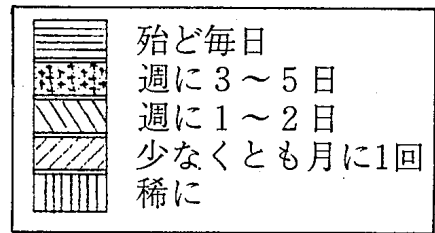 殆ど毎日
週に3～5日
週に1～2日
少なくとも月に1回
稀に